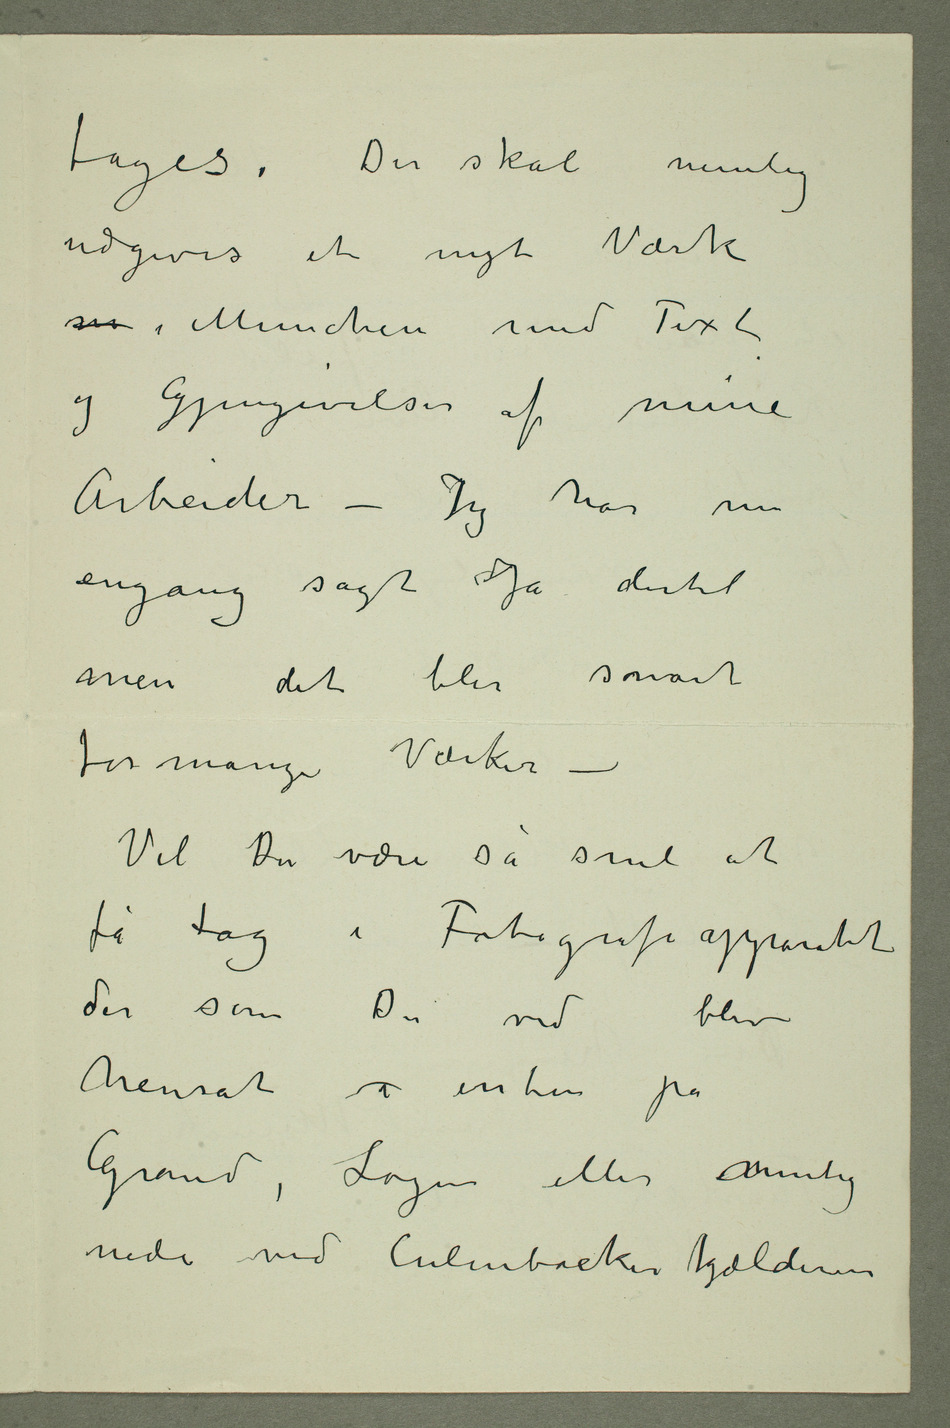 tages. Der skal nemlig
udgives et nyt Værk
m i Münchén med Text
og Gjengivelser af mine
Arbeider – Jeg har nu
engang sagt Ja dertil
men det blir snart
for mange Værker –
Vil Du være så snil at
få tag i Fotografiapparatet
der som Du ved blev
hensat i enten på
Grand, Logen eller nemlig
nede ved Culmbacker kjælderen